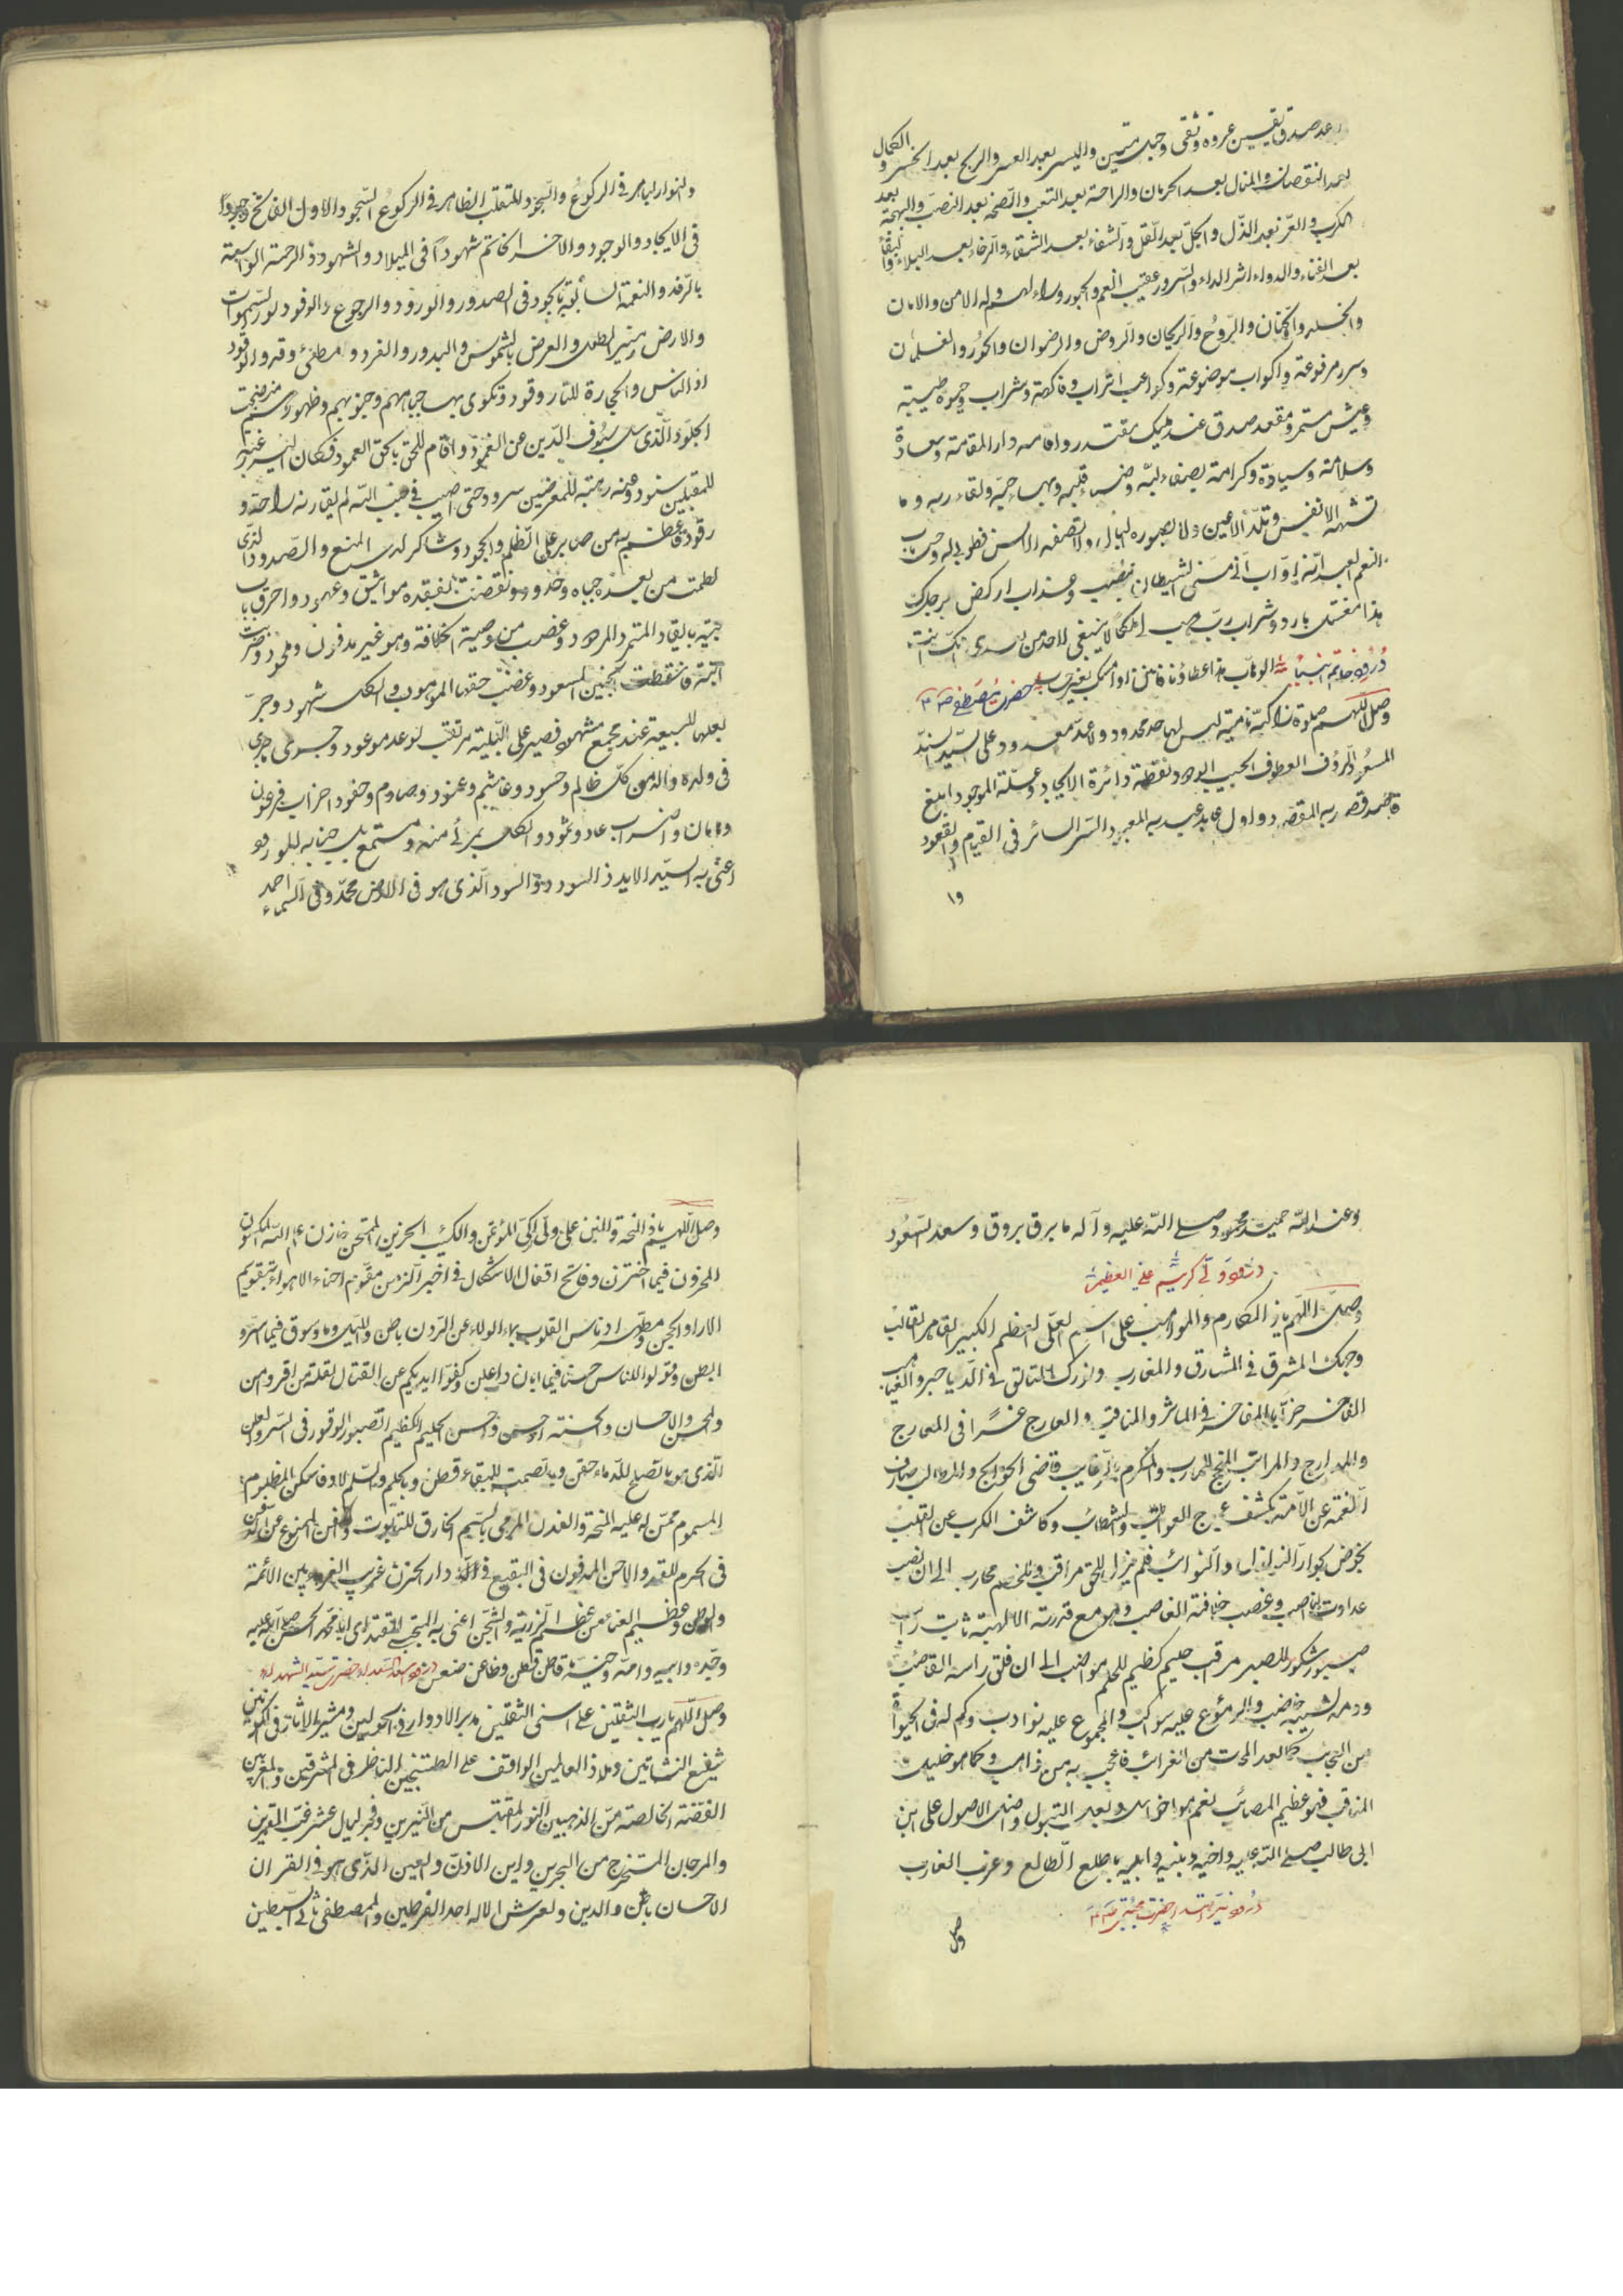 وعد صدق يقين عروة وثقى وحبل متين واليسر بعد العسر والربح بعد الخسر والكمال
بعد النقصان والمنال بعد الحرمان والراحة بعد التعب والصحة بعد النصب والبهجة بعد
الكرب والعز بعد الذل والحل بعد الثقل والشفاء بعد الشقاء والرخاء بعد البلاء والبقاء
بعد الفناء والدواء اثر الداء والسرور عقيب الغم والحبور وراء الهم وله الامن والامان
والخلد والجنان والروح والريحان والروض والرضوان والحور والغلمان
وسرر مرفوعة واكواب موضوعة وكواعب اتراب وفاكهة وشراب وحيوة طيبة
وعيش مستمر ومقعد صدق عند مليك مقتدر واقامه دار المقامة وسعادة
وسلامة وسيادة وكرامة بصفاء لبه وضياء قلبه وبهاء حبه ولقاء ربه وما
تشتهيه الانفس وتلذ الاعين ولا يصوره البال ولا تصفه الالسن فطوبى له وحسن مآب
نعم العبد انه اواب انى مسنى الشيطان بنصب وعذاب اركض برجلك
هذا مغتسل بارد وشراب رب هب لى ملكا لا ينبغى لاحد من بعدى انك انت
الوهاب هذا عطاؤنا فامنن او امسك بغير حساب
درود خاتم انبياء حضرت مصطفى
وصل اللهم صلوة زاكية نامية ليس لها حد محدود ولا عد معدود على السيد السند
المسعود الرؤف العطوف الحبيب الودود نقطة دائرة الايجاد وعلة الموجود ابلغ
قاصد قصد ربه المقصود واول عابد عبد ربه المعبود السر السائر فى القيام والقعود
وا
والنور الباهر فى الركوع والسجود المتقلب الظاهر فى الركوع السجود الاول الفاتح وجودا
فى الايجاد والوجود والاخر الخاتم شهودا فى الميلاد والشهود ذى الرحمة الواسعة
بالرفد والنعمة السابقة بالجود فى الصدور والورود والرجوع والوفود نور السموات
والارض ومنير الطول والعرض بالشموس والبدور والفرد و مطفئ وقد والوقود
اذ الناس والحجارة للنار وقود وتكوى بها جباههم وجنوبهم وظهورهم منه نضجت
الجلود الذى سل سيوف الدين عن الغمود واقام للحق بالحق العمود فكان
للمقبلين ستود وعنه رهبة للمعرضين سرود حتى اصيب فى جنب الله لم يقارنه راحة و
رقود فاعظم به من صابر على الظلم والجحود وشاكر لدى المنع والصدود الذى
لطمت من بعده جباه وخدود ونقضت بفقده مواثيق وعهود واحرق باب
بيته بايقاد المتمرد المرود وغصب من وصيه الخلافة وهو غير مدفون وملحود وضربت
ابنته فاسقطت بجنين المسعود وغصب حقها الموهوب والكل شهود وجر
بعلها للبيعة عند مجمع مشهود فصبر على البلية مرتقب لوعد موعود وجرى ما جرى
فى ولده واله من كل ظالم وحسود وغاشم وعنود وصادم وحقود احزاب فرعون
وهامان واضراب عاد وثمود والكل بمرئ منه ومستمع بل جنابه للموعود
اعنى به السيد الايد ذا السودد والسود الذى هو فى الارض محمد وفى السماء احمد
وعند الله حميد محمود صلى الله عليه وآله ما برق بروق وسعد السعود
درود ولى كريم على العظيم
وصل اللهم يا ذا المكارم والمواهب على اسمك العلى العظيم الكبير القاهر الغالب
وجهك المشرق فى المشارق والمغارب ونورك المتالق فى الدياجر والغياهب
الفاخر بالمفاخر فى الماثر والمناقب والعارج فى المعارج
والمدارج والمراتب المنجح للمآرب والمكرم بالرغايب قاضى الحوائج والمطالب صارف
الغمة عن الامة بكشف عوج العواقب والشطائب وكاشف الكرب عن القلب
بخوض بحوار النوازل والنوائب فلم يزل للحق مراقب وللخصم محارب الى ان نصب
عداوته الناصب وغصب خلافته الغاصب وهو مع قدرته الالهية ثابت راتب
صبور شكور للصبر مراقب حليم كظيم للحلم مواظب الى ان فلق راسه القاضب
ودمه لشيبه خاضب والدموع عليه سواكب والجموع عليه نوادب وكم له فى الحيوة
من العجائب كما بعد الموت من الغرائب فاعجب به من ذاهب وكما هو خليفة
المناقب فهو عظيم المصائب نعم هو اخو الرسول وبعل البتول واصل الاصول على ابن
ابى طالب صلى الله عليه واخيه وبنيه وابيه ما طلع الطالع وغرب الغارب
درود نير امجد حضرت مجتبى
وصل
وصل اللهم يا ذا المنحة والمنن على ولى الزكى المؤتمن والكئيب الحزين الممتحن خازن علم الله المكنون
المخزون فيما اختزن وفاتح اقفال الاشكال فى اخير الزمن مقوم احناء الاهواء بتقويم
الاراء والحجن ومطهر ادناس القلوب بماء الولاء عن الدرن باطن والليل وما وسق فيما اسر و
ابطن وقولوا للناس حسنا فيما ابان واعلن وكفوا ايديكم عن القتال لقلة من اقر وامن
والمحسن والاحسان والحسنة والحسن واحسن الحليم الكظيم الصبور الوقور فى السر والعلن
الذى هو بالصلح للدماء حقن وبالصمت للبقاء قطن وبالحلم والسلم لاذ فاسكن المظلوم
المسموم ممن له عليه المنحة والفدن المرمى بالسهم الخارق للتابوت والكفن الممنوع عن الدفن
فى الحرم للقهر والاحن المدفون فى البقيع فى دار الحزن غريب الغرباء بين الائمة
والوطن وعظيم الغناء من عظم الرزية والشجن اعنى به المجتبى المقتدى ابا محمد الحسن صلى الله عليه و
جده وابيه وامه واخيه ما قاطن قطن وظاعن ظعن درود سعد السعداء حضرت سيد الشهداء
وصل اللهم يا رب الثقلين على اسنى الثقلين مدير الادوار فى الحولين ومشير الاثار فى الكونين
شفيع النشاتين وملاذ العالمين الواقف على الطتنجين الناظر فى المشرقين والمغربين
الفضة الخالصة من الذهبين النور المقتبس من النيرين وفجر ليال عشر غب القمرين
والمرجان المستخرج من البحرين وابن الاذن والعين الذى هو فى القران
الاحسان باطن والدين ولعرش الاله احد القرطين والمصطفى ثانى السبطين